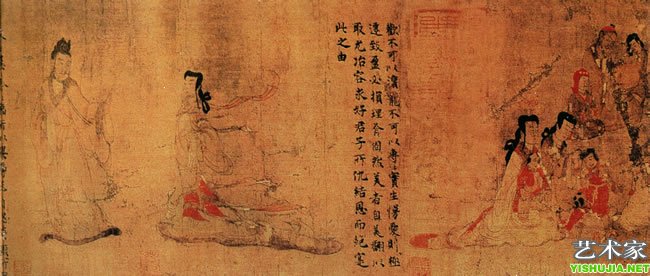 歡不可以瀆寵不可以專實生慢愛則極
遷致盈必損理有固然美者自美翩以
取尤冶容求好君子所仇結恩而絕寔
此之由
艺术家
YISHUJIA.NET